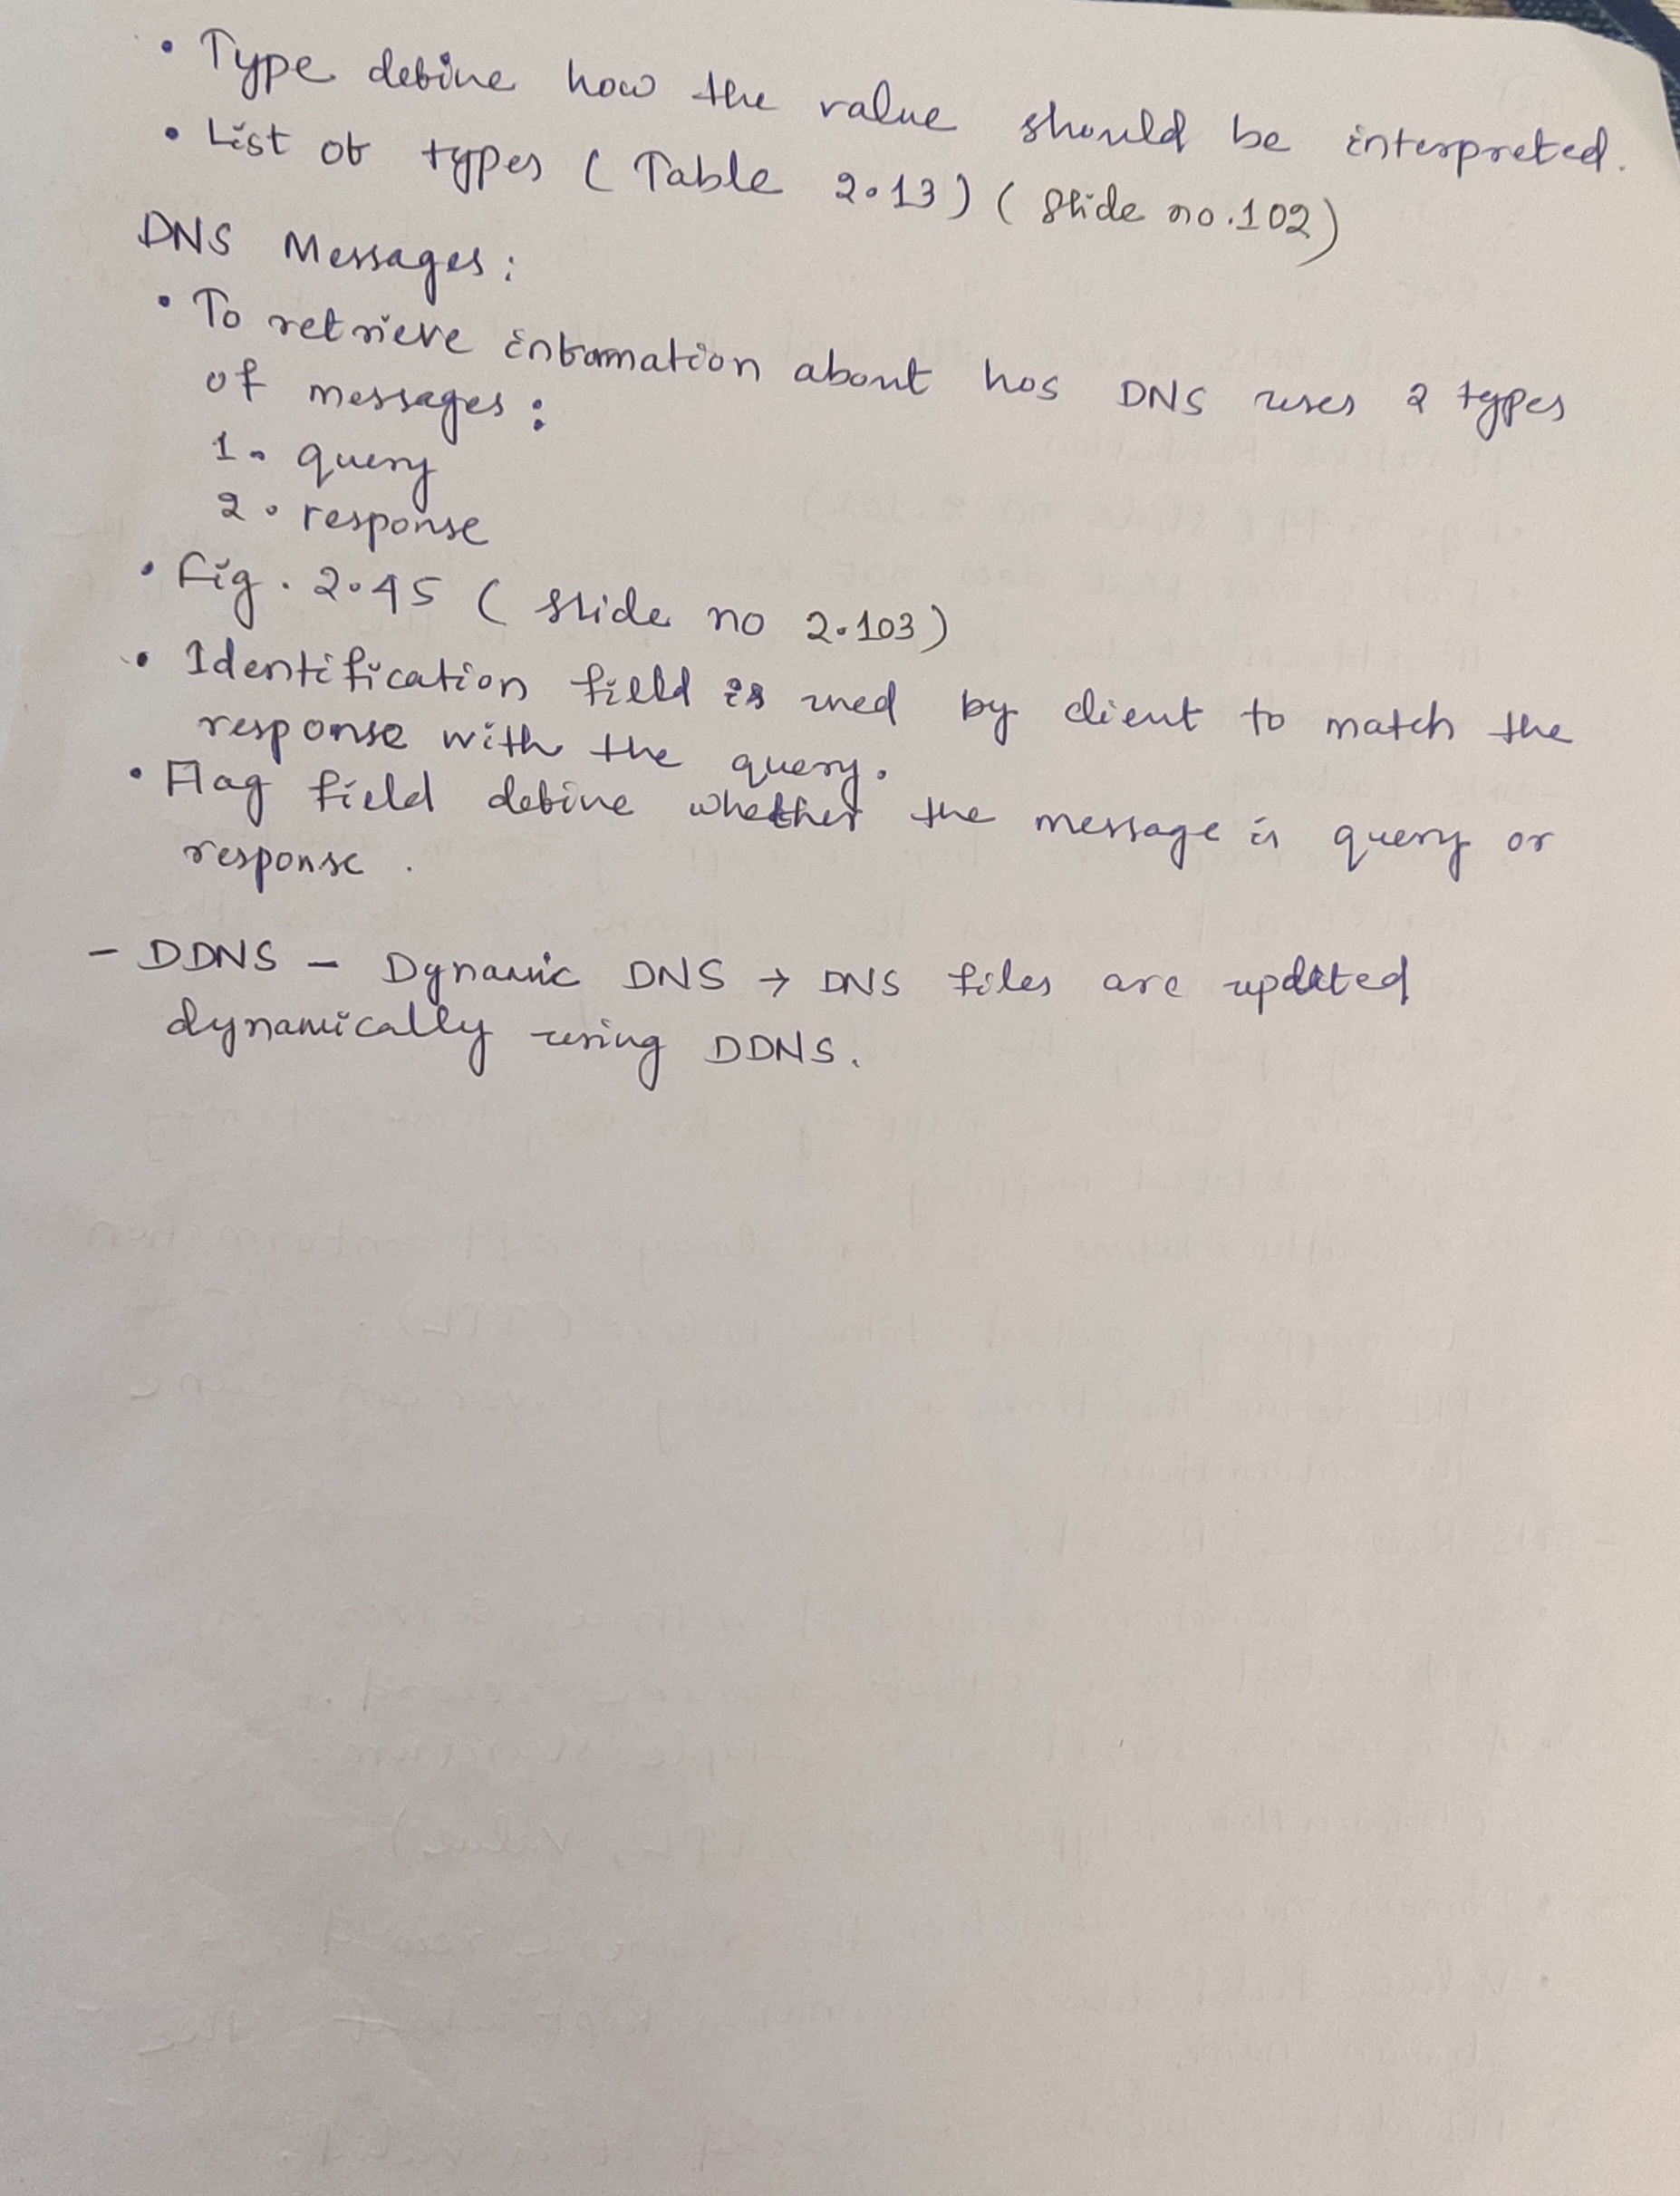 • Type define how the value should be interpreted.
• List of types (Table 2.13) (Slide no.102)
DNS Messages:
• To retrieve information about hos DNS uses 2 types
of messages:
1. query
2. response
• Fig. 2.45 (slide no 2.103)
• Identification field is used by client to match the
response with the query.
• Flag field define whether the message is query or
response.
- DDNS - Dynamic DNS → DNS files are updated
dynamically using DDNS.